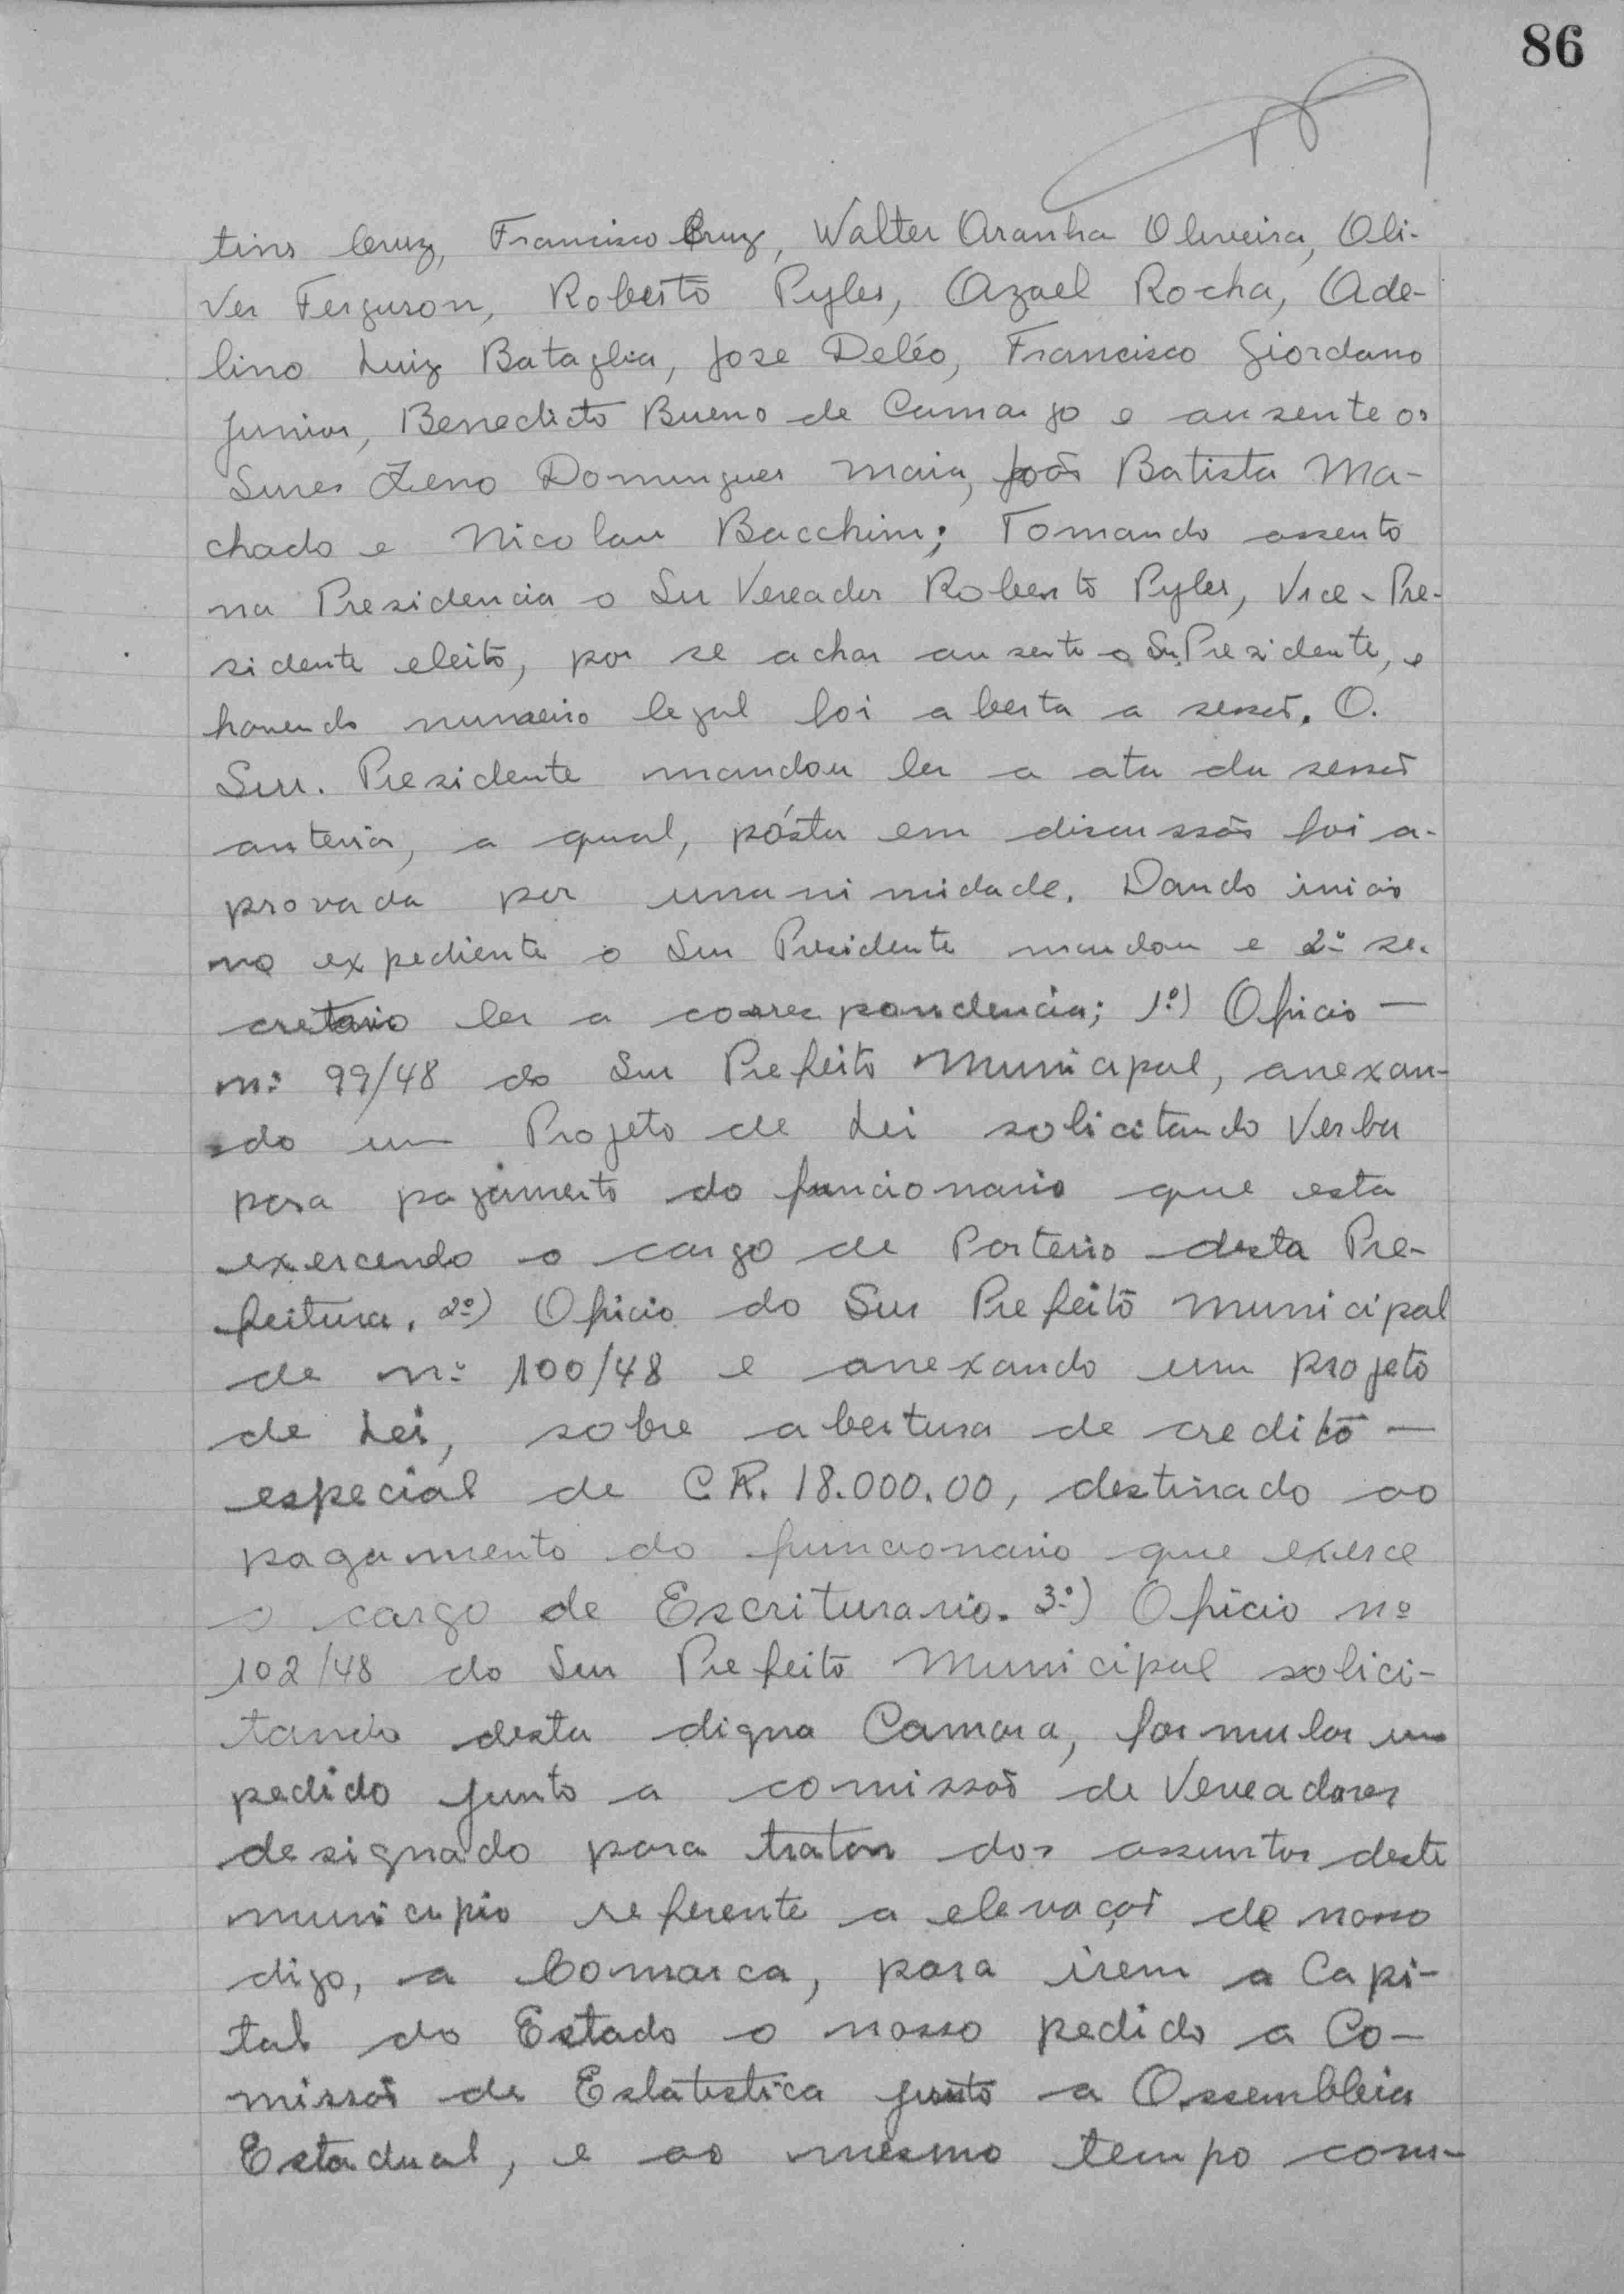 86
tins Cruz, Francisco Cruz, Walter Aranha Oliveira, Oli-
ver Ferguson, Roberto Pyles, Azael Rocha, Ade-
lino Luiz Bataglia, Jose Deléo, Francisco Giordano
Junior, Benedicto Bueno de Camargo e ausente os
Snres Zeno Domingues Maia, João Batista Ma-
chado e Nicolau Bacchim; Tomando assento
na Presidencia o Snr Vereador Roberto Pyles, Vice-Pre-
sidente eleito, por se achar ausente o Sr. Presidente, e
havendo numeiro legal foi aberta a sessão. O.
Snr. Presidente mandou ler a ata da sessão
anterior, a qual, pósta em discussão foi a-
provada por unanimidade. Dando inicio
no expediente o Snr Presidente mandou e 2º se-
cretario ler a correspondencia; 1º) Oficio —
nº 99/48 do Snr Prefeito Municipal, anexan-
do um Projeto de Lei solicitando Verba
para pagamento do funcionario que esta
exercendo o cargo de Porteiro desta Pre-
feitura. 2º) Oficio do Snr Prefeito Municipal
de nº 100/48 e anexando um projeto
de Lei, sobre abertura de credito —
especial de CR. 18.000.00, destinado ao
pagamento do funcionario que exerce
o cargo de Escriturario. 3º) Oficio nº
102/48 do Snr Prefeito Municipal solici-
tando desta digna Camara, formular um
pedido junto a comissão de Vereadores
designado para tratar dos assuntos deste
municipio referente a elevação de nosso
digo, a Comarca, para irem a Capi-
tal do Estado o nosso pedido a Co-
missão de Estatistica junto a Assembleia
Estadual, e ao mesmo tempo com-